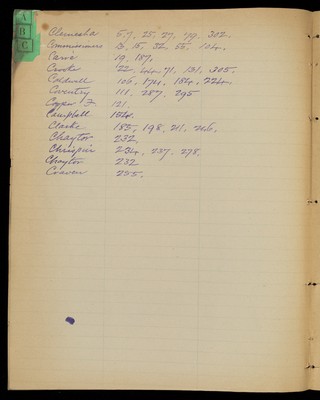 A
B
C
Clemesha 5.7, 25, 27, 79, 302.
Commissioners 13, 15, 32, 55, 104,
Carié 19, 187,
Cooke 22, 71, 131, 305.
Coldwell 106, 174, 184, 224.
Coventry 111. 287. 295
121.
Campbell 184.
Clarke 185, 198, 211, 266.
Chaytor 232,
Chrispin 234, 237. 278,
Chaytor 232
Craven 255.